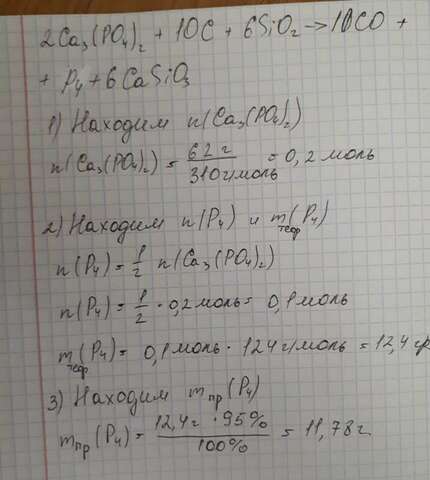 2Ca₃(PO₄)₂ + 10C + 6SiO₂ → 10CO +
+ P₄ + 6CaSiO₃
1) Находим n(Ca₃(PO₄)₂)
n(Ca₃(PO₄)₂) = 62 г / 310 г/моль = 0,2 моль
2) Находим n(P₄) и m теор (P₄)
n(P₄) = 1/2 n(Ca₃(PO₄)₂)
n(P₄) = 1/2 · 0,2 моль = 0,1 моль
m теор (P₄) = 0,1 моль · 124 г/моль = 12,4 гр
3) Находим m пр (P₄)
m пр (P₄) = 12,4 г · 95% / 100% = 11,78 г